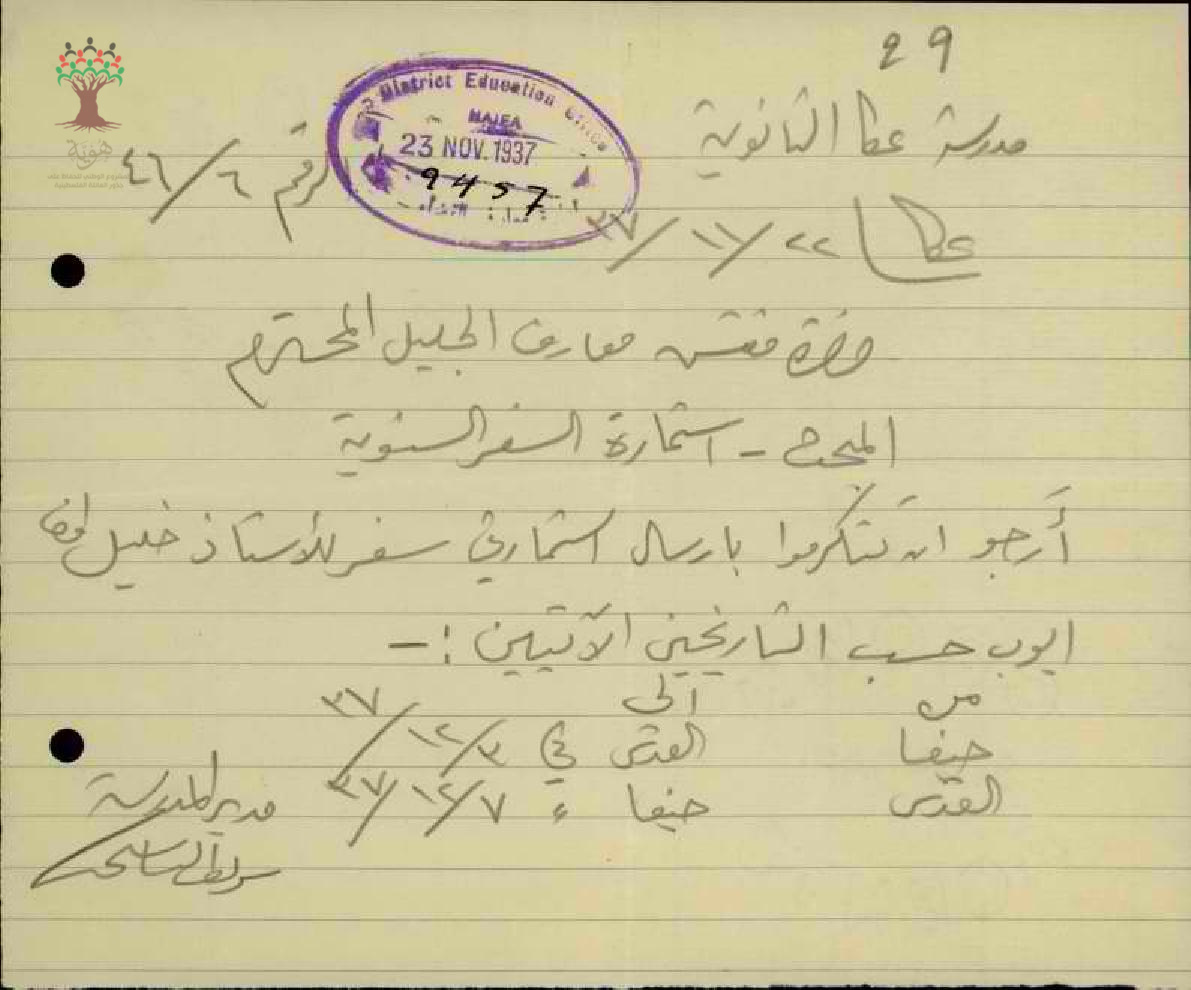 29
مدرسة عكا الثانوية
رقم ٦/٤٦
District Education Office
HAIFA
23 NOV. 1937
9457
عكا ٢٢/١١/٣٧
حضرة مفتش معارف الجليل المحترم
المبحث - استمارة السفر السنوية
أرجو ان تتكرموا بارسال استمارتي سفر للأستاذ خليل
ايوب حسب التاريخين الآتيين :-
من الى
حيفا القدس في ٣/١٢/٣٧
القدس حيفا ء ٧/١٢/٣٧
مدير المدرسة
هوية